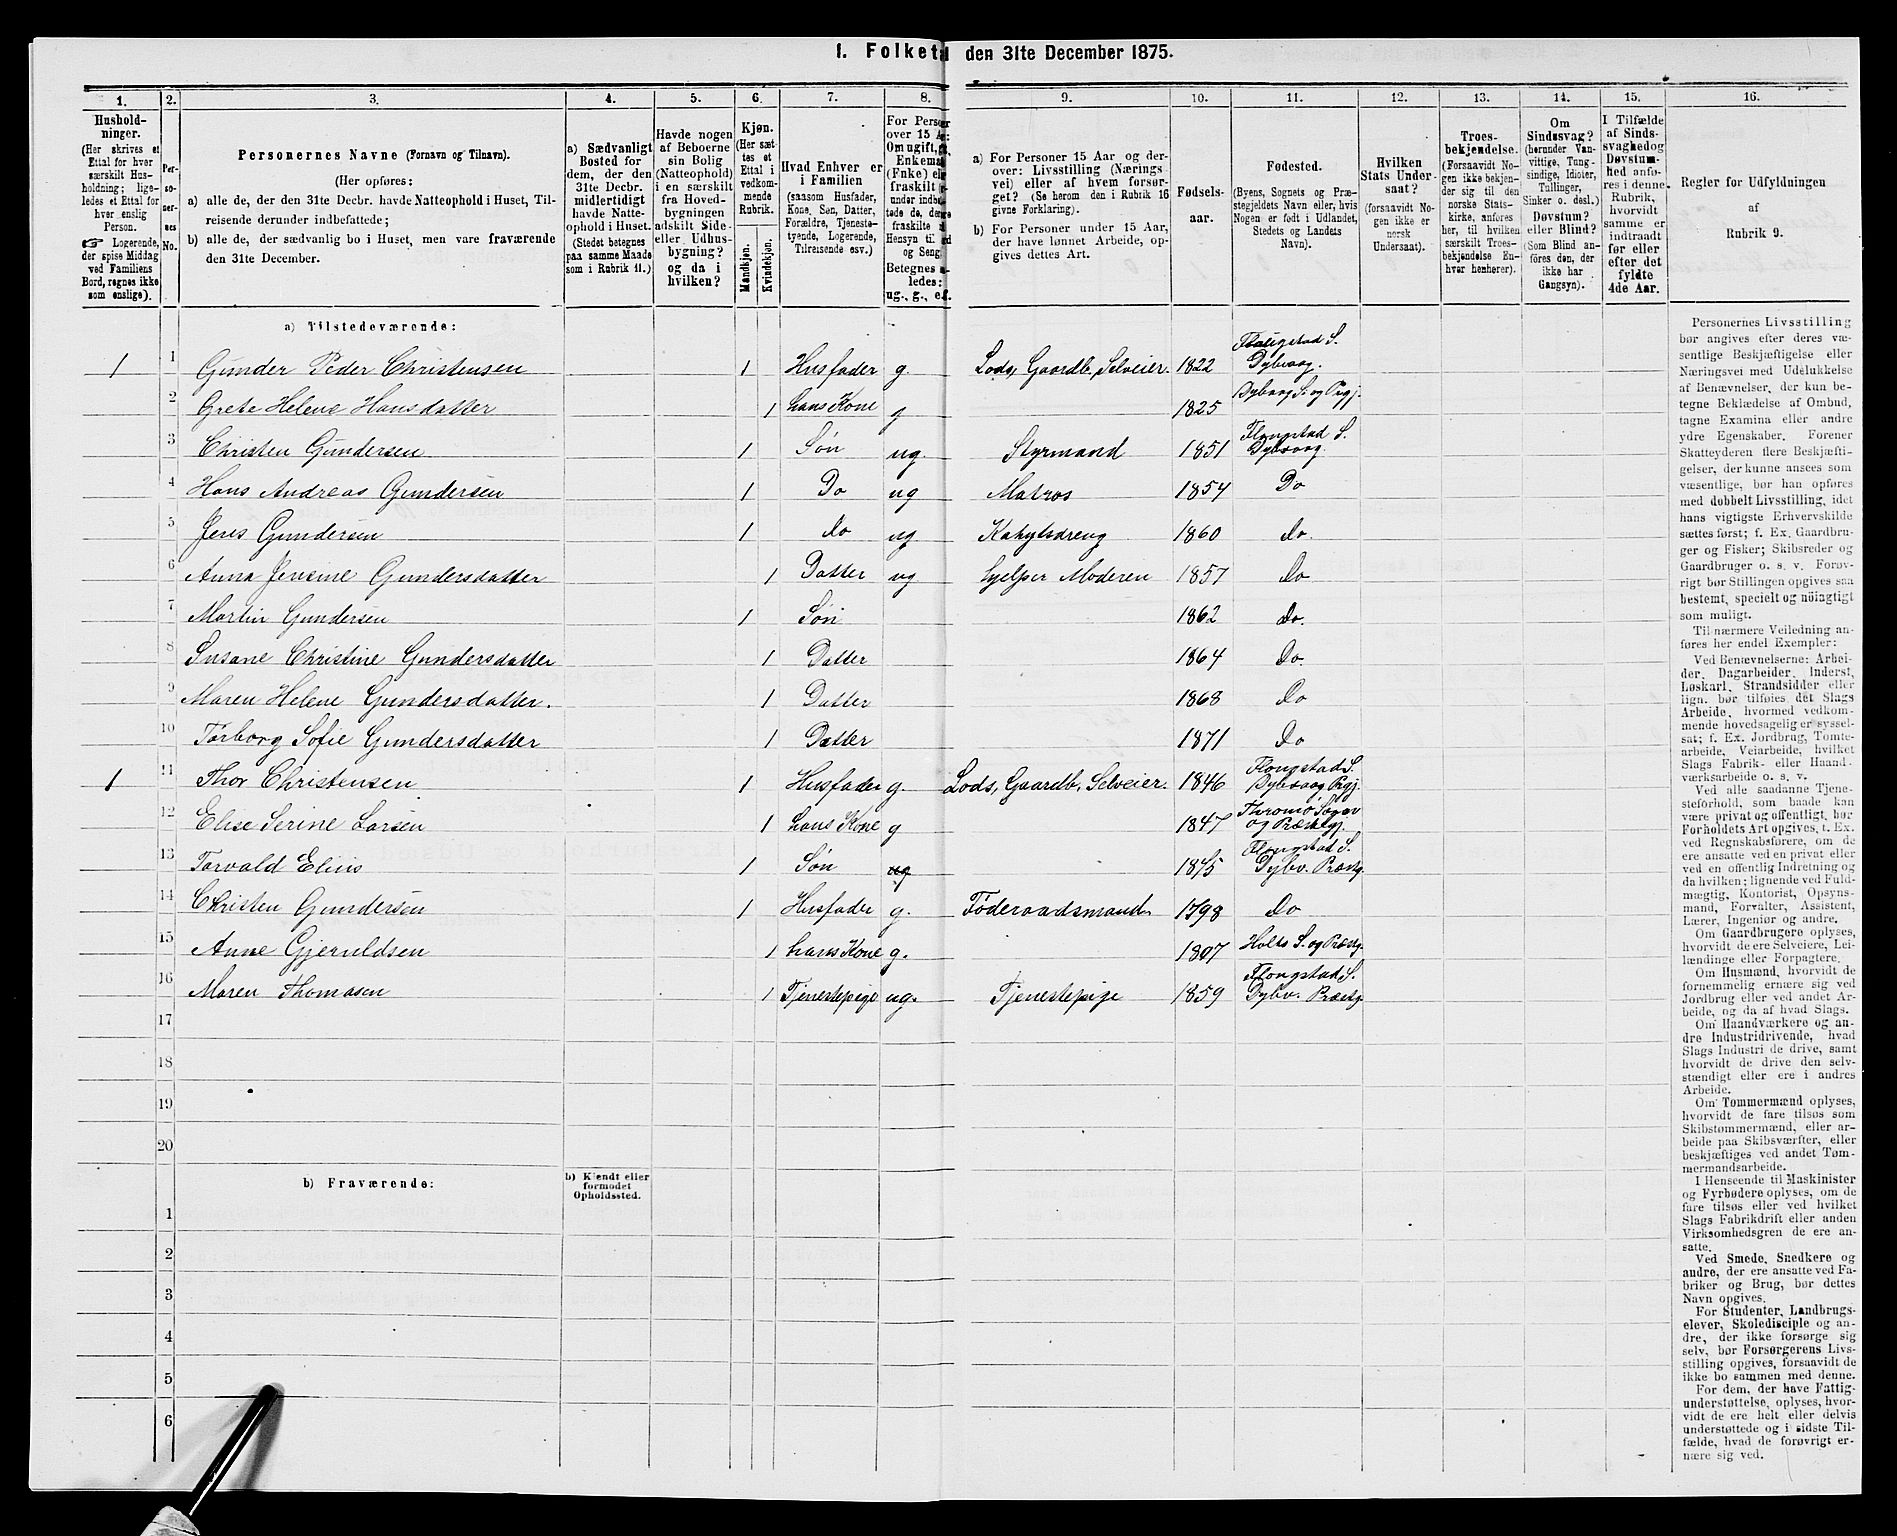 1. Folketal den 31te December 1875.
1. 2. 3. 4. 5. 6. 7. 8. 9. 10. 11. 12. 13. 14. 15. 16.
Hushold-
ninger.
(Her skrives et
Ettal for hver
særskilt Hus-
holdning; lige-
ledes et Ettal for
hver enslig
Person.
☞ Logerende,
der spise Middag
ved Familiens
Bord, regnes ikke
som enslige).
Per-
so-
ner-
nes
No.
Personernes Navne (Fornavn og Tilnavn).
(Her opføres:
a) alle de, der den 31te Decbr. havde Natteophold i Huset, Til-
reisende derunder indbefattede;
b) alle de, der sædvanlig bo i Huset, men vare fraværende
den 31te December.
a) Sædvanligt
Bosted for
dem, der den
31te Decbr.
midlertidigt
havde Natte-
ophold i Huset.
(Stedet betegnes
paa samme Maade
som i Rubrik 11.)
Havde nogen
af Beboerne
sin Bolig
(Natteophold)
i en særskilt
fra Hoved-
bygningen
adskilt Side-
eller Udhus-
bygning?
og da i
hvilken?
Kjøn.
(Her sæt-
tes et
Ettal i
vedkom-
mende
Rubrik.
Mandkjøn.
Kvindekjøn.
Hvad Enhver er
i Familien
(saasom Husfader,
Kone, Søn, Datter,
Forældre, Tjeneste-
tyende, Logerende,
Tilreisende osv.)
For Personer
over 15 Aar:
Om ugift, gift,
Enkemand
(Enke) eller
fraskilt
Betegnes saa-
ledes:
ug., g., e., f.
a) For Personer 15 Aar og der-
over: Livsstilling (Nærings-
vei) eller af hvem forsør-
get? (Se herom den i Rubrik 16
givne Forklaring).
b) For Personer under 15 Aar,
der have lønnet Arbeide, op-
gives dettes Art.
Fødsels-
aar.
Fødested.
(Byens, Sognets og Præ-
stegjeldets Navn eller, hvis
Nogen er født i Udlandet,
Stedets og Landets
Navn).
Hvilken
Stats Under-
saat?
(forsaavidt No-
gen ikke er
norsk
Undersaat).
Troes-
bekjendelse.
(Forsaavidt No-
gen ikke bekjen-
der sig til den
norske Stats-
kirke, anføres
her, til hvilken
særskilt Troes-
bekjendelse En-
hver henhører).
Om
Sindssvag?
(herunder Van-
vittige, Tung-
sindige, Idioter,
Tullinger,
Sinker o. desl.)
Døvstum?
eller Blind?
(Som Blind an-
føres den, der
ikke har
Gangsyn).
I Tilfælde
af Sinds-
svaghed og
Døvstum-
hed anfø-
res i denne
Rubrik,
hvorvidt
samme er
indtraadt
før eller
efter det
fyldte
4de Aar.
Regler for Udfyldningen
af
Rubrik 9.
a) Tilstedeværende:
1 1 Gunder Peder Christensen 1 Husfader g. Lods, Gaardb, Selveier. 1822 Flaugstad S. Dybvaag.
2 Grete Helene Hansdatter 1 hans Kone g 1825 Dybvaag S. og Prgj.
3 Christen Gundersen 1 Søn ug. Styrmand 1851 Flougstad S. Dybvaag.
4 Hans Andreas Gundersen 1 Do ug Matros 1854 Do
5 Jens Gundersen 1 do ug Kahytsdreng 1860 do.
6 Anna Jensine Gundersdatter 1 Datter ug hjelper Moderen 1857 Do
7 Martin Gundersen 1 Søn 1862 do.
8 Susane Christine Gundersdatter 1 Datter 1864 Do.
9 Maren Helene Gundersdatter. 1 Datter 1868 Do
10 Torborg Sofie Gundersdatter 1 Datter 1871 Do
1 11 Thor Christensen 1 Husfader g. Lods, Gaardb, Selveier. 1846 Flougstad S. Dybvaag Prgj.
12 Elise Serine Larsen 1 hans Kone g 1847 Thromø Sogn og Præstegj.
13 Torvald Elius 1 Søn ug 1875 Flougstad S. Dybv. Præstg.
14 Christen Gundersen 1 Husfader g. Föderaadsmand 1798 do
15 Anne Gjeruldsen 1 hans Kone g. 1807 Holts S. og Præstg.
16 Maren Thomasen 1 Tjenestepige ug. Tjenestepige 1859 Flougstad S. Dybv. Præstg.
17
18
19
20
b) Fraværende:
b) Kjendt eller
formodet
Opholdssted.
1
2
3
4
5
6
Personernes Livsstilling
bør angives efter deres væ-
sentlige Beskjæftigelse eller
Næringsvei med Udelukkelse
af Benævnelser, der kun be-
tegne Beklædelse af Ombud,
tagne Examina eller andre
ydre Egenskaber. Forener
Skatteyderen flere Beskjæfti-
gelser, der kunne ansees som
væsentlige, bør han opføres
med dobbelt Livsstilling, idet
hans vigtigste Erhvervskilde
sættes først; f. Ex. Gaardbru-
ger og Fisker; Skibsreder og
Gaardbruger o. s. v. Forøv-
rigt bør Stillingen opgives saa
bestemt, specielt og nöiagtigt
som muligt.
Til nærmere Veiledning an-
føres her endel Exempler:
Ved Benævnelserne: Arbei-
der, Dagarbeider, Inderst,
Løskarl, Strandsidder eller
lign. bør tilføies det Slags
Arbeide, hvormed vedkom-
mende hovedsagelig er syssel-
sat; f. Ex. Jordbrug, Tomte-
arbeide, Veiarbeide, hvilket
Slags Fabrik- eller Haand-
værksarbeide o. s. v.
Ved alle saadanne Tjene-
steforhold, som baade kan
være privat og offentligt, bør
Forholdets Art opgives, t. Ex.
ved Regnskabsførere, om de
ere ansatte ved en privat eller
ved en offentlig Indretning og
da hvilken; lignende ved Fuld-
mægtig, Kontorist, Opsyns-
mand, Forvalter, Assistent,
Lærer, Ingeniør og andre.
Om Gaardbrugere oplyses,
hvorvidt de ere Selveiere, Lei-
lændinge eller Forpagtere.
Om Husmænd, hvorvidt de
fornemmelig ernære sig ved
Jordbrug eller ved andet Ar-
beide, og da af hvad Slags.
Om Haandværkere og an-
dre Industridrivende, hvad
Slags Industri de drive, samt
hvorvidt de drive den selv-
stændigt eller ere i andres
Arbeide.
Om Tømmermænd oplyses,
hvorvidt de fare tilsøs som
Skibstømmermænd, eller ar-
beide paa Skibsværfter, eller
beskjæftiges ved andet Tøm-
mermandsarbeide.
I Henseende til Maskinister
og Fyrbødere oplyses, om de
fare tilsøs eller ved hvilket
Slags Fabrikdrift eller anden
Virksomhedsgren de ere an-
satte.
Ved Smede, Snedkere og
andre, der ere ansatte ved Fa-
briker og Brug, bør dettes
Navn opgives.
For Studenter, Landbrugs-
elever, Skoledisciple og an-
dre, der ikke forsørge sig
selv, bør Forsørgerens Livs-
stilling opgives, forsaavidt de
ikke bo sammen med denne.
For dem, der have Fattig-
understøttelse, oplyses, hvor-
vidt de ere helt eller delvis
understøttede og i sidste Til-
fælde, hvad de forøvrigt er-
nære sig ved.